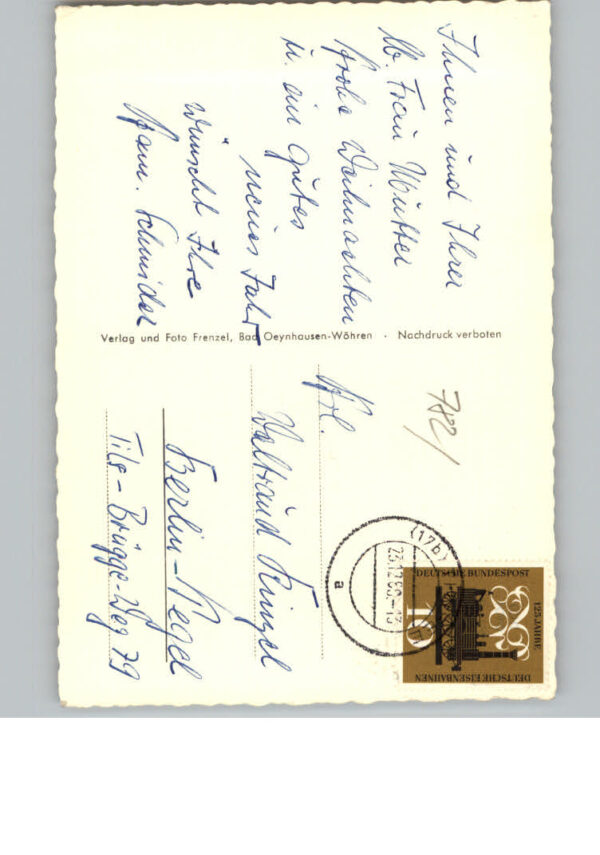 Ihnen und Ihrer
lb. Frau Mutter
frohe Weihnachten
u. ein gutes
neues Jahr
wünscht Ihre
Fam. Schneider
Verlag und Foto Frenzel, Bad Oeynhausen-Wöhren · Nachdruck verboten
782/
Frl.
Waltraud
Berlin-Tegel
Tile-Brügge-Weg 79
(17b)
23.12.60.-13
a
DEUTSCHE BUNDESPOST
10
125 JAHRE
DEUTSCHE EISENBAHNEN